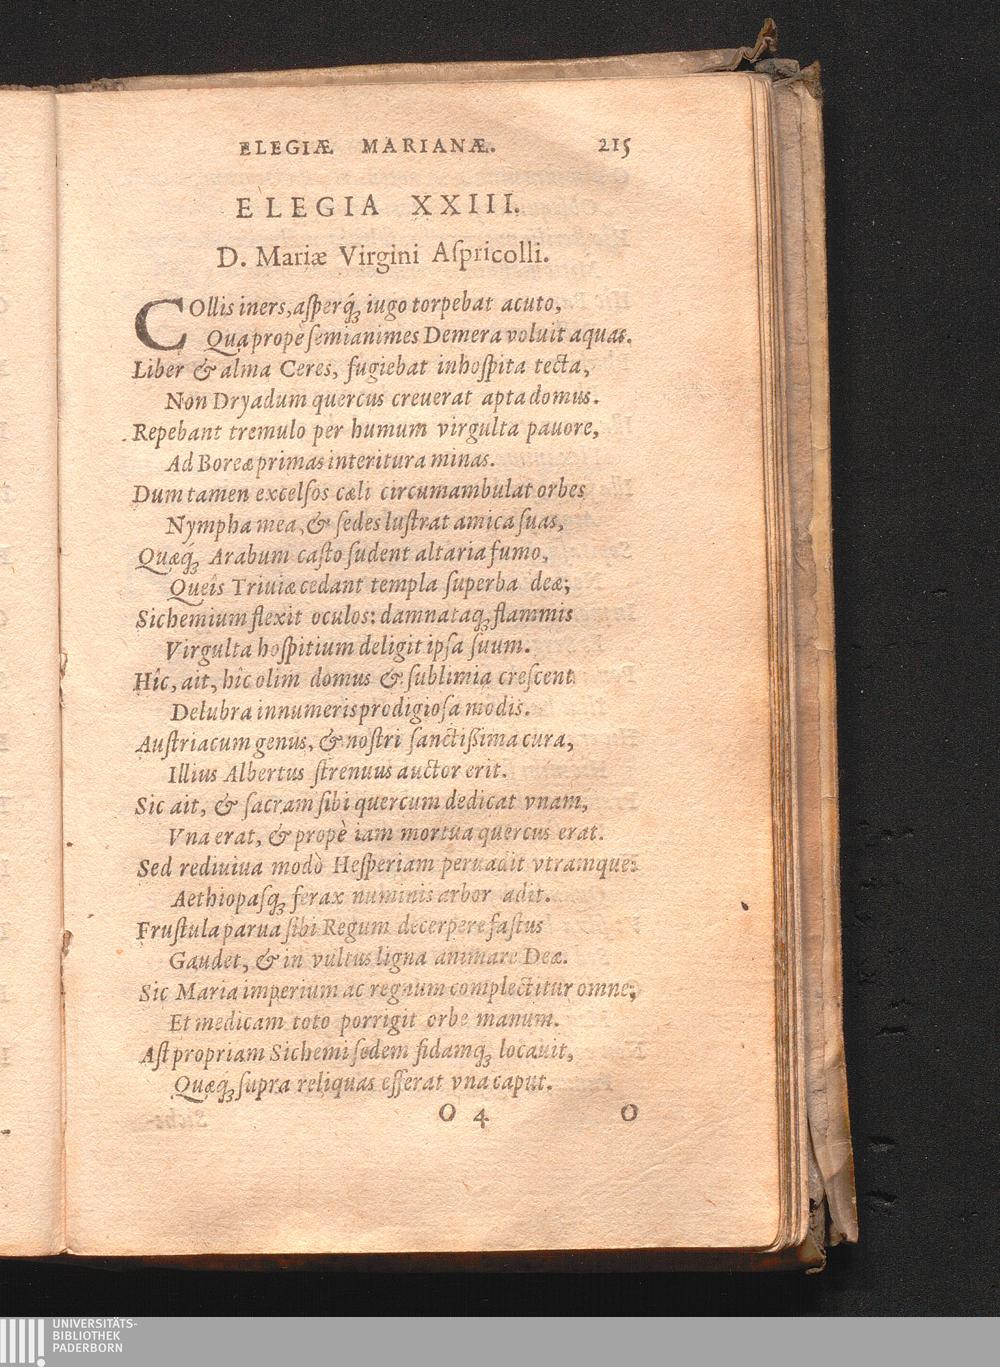 ELEGIÆ MARIANÆ. 215
ELEGIA XXIII.
D. Mariæ Virgini Aſpricolli.
COllis iners, aſperq́ꝫ iugo torpebat acuto,
Qua propè ſemianimes Demera voluit aquas.
Liber & alma Ceres, fugiebat inhoſpita tecta,
Non Dryadum quercus creuerat apta domus.
Repebant tremulo per humum virgulta pauore,
Ad Boreæ primas interitura minas.
Dum tamen excelſos cæli circumambulat orbes
Nympha mea, & ſedes luſtrat amica ſuas,
Quæq́ꝫ Arabum caſto ſudent altaria fumo,
Queîs Triuiæ cedant templa ſuperba deæ;
Sichemium flexit oculos: damnataq́ꝫ flammis
Virgulta hoſpitium deligit ipſa ſuum.
Hîc, ait, hîc olim domus & ſublimia creſcent
Delubra innumeris prodigioſa modis.
Auſtriacum genus, & noſtri ſanctiſſima cura,
Illius Albertus ſtrenuus auctor erit.
Sic ait, & ſacram ſibi quercum dedicat vnam,
Vna erat, & propè iam mortua quercus erat.
Sed rediuiua modò Heſperiam peruadit vtramque:
Aethiopaſq́ꝫ ferax numinis arbor adit.
Fruſtula parua ſibi Regum decerpere faſtus
Gaudet, & in vultus ligna animare Deæ.
Sic Maria imperium ac regnum complectitur omne;
Et medicam toto porrigit orbe manum.
Aſt propriam Sichemi ſedem fidamq́ꝫ locauit,
Quæq́ꝫ ſupra reliquas efferat vna caput.
O 4 O
UNIVERSITÄTS-
BIBLIOTHEK
PADERBORN